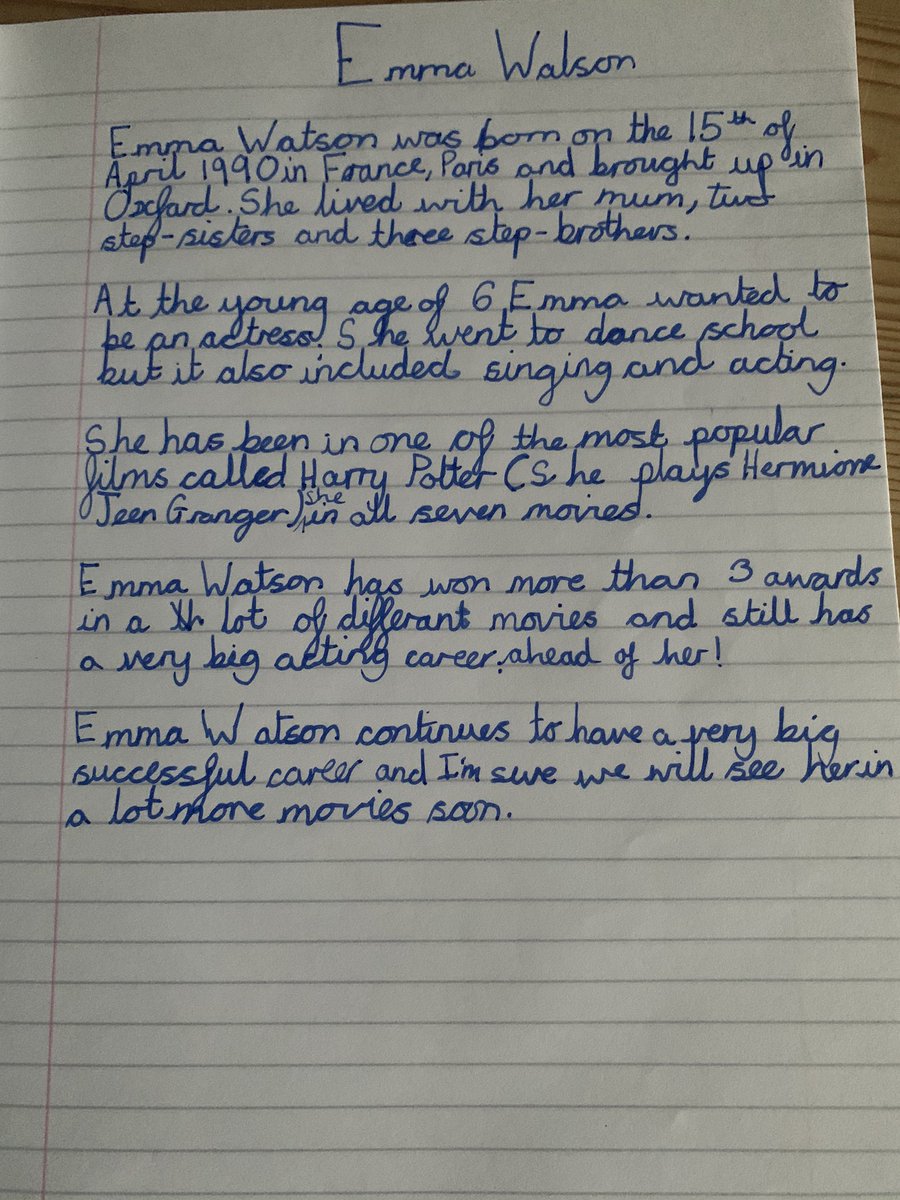 Emma Watson
Emma Watson was born on the 15th of
April 1990 in France, Paris and brought up in
Oxfard. She lived with her mum, two
step-sisters and three step-brothers.
At the young age of 6 Emma wanted to
be an actress. She went to dance school
but it also included singing and acting.
She has been in one of the most popular
films called Harry Potter (She plays Hermione
Jeen Granger) she in all seven movies.
Emma Watson has won more than 3 awards
in a lot of differant movies and still has
a very big acting career, ahead of her!
Emma Watson continues to have a very big
successful career and I'm sure we will see her in
a lot more movies soon.